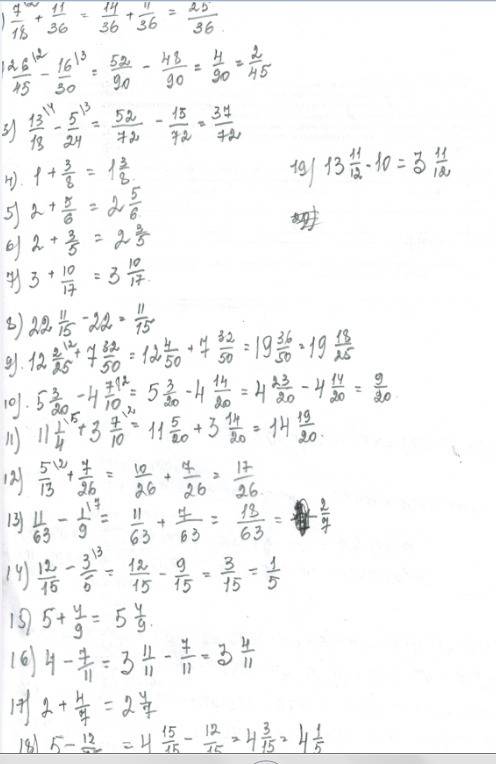 ) 7/18 \2 + 11/36 = 14/36 + 11/36 = 25/36
26/45 \2 - 16/30 \3 = 52/90 - 48/90 = 4/90 = 2/45
3) 13/18 \4 - 5/24 \3 = 52/72 - 15/72 = 37/72
4). 1 + 3/8 = 1 3/8.
5) 2 + 5/6 = 2 5/6
6) 2 + 3/5 = 2 3/5
7) 3 + 10/17 = 3 10/17.
8) 22 11/15 - 22 = 11/15
9). 12 2/25 \2 + 7 32/50 = 12 4/50 + 7 32/50 = 19 36/50 = 19 18/25
10). 5 3/20 - 4 7/10 \2 = 5 3/20 - 4 14/20 = 4 23/20 - 4 14/20 = 9/20.
11) 11 1/4 \5 + 3 7/10 \2 = 11 5/20 + 3 14/20 = 14 19/20.
12) 5/13 \2 + 7/26 = 10/26 + 7/26 = 17/26.
13) 11/63 - 1/9 \7 = 11/63 + 7/63 = 18/63 = 2/7
14) 12/15 - 3/5 \3 = 12/15 - 9/15 = 3/15 = 1/5
15) 5 + 4/9 = 5 4/9.
16) 4 - 7/11 = 3 11/11 - 7/11 = 3 4/11
17) 2 + 4/7 = 2 4/7
18) 5 - 12/ = 4 15/15 - 12/15 = 4 3/15 = 4 1/5
19) 13 11/12 - 10 = 3 11/12